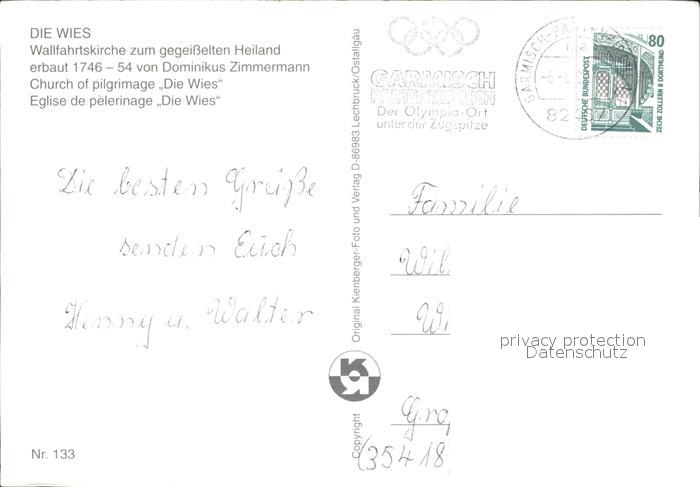 DIE WIES
Wallfahrtskirche zum gegeißelten Heiland
erbaut 1746 – 54 von Dominikus Zimmermann
Church of pilgrimage „Die Wies“
Eglise de pèlerinage „Die Wies“
Die besten Grüße
senden Euch
Henny u. Walter
Nr. 133
Original Kienberger-Foto und Verlag D-86983 Lechbruck/Ostallgäu
Copyright
GARMISCH
PARTENKIRCHEN
Der Olympia-Ort
unter der Zugspitze
GARMISCH-PA
82467
80
DEUTSCHE BUNDESPOST
ZECHE ZOLLERN II DORTMUND
Familie
Wil
Wi
privacy protection
Datenschutz
Gro
(35418